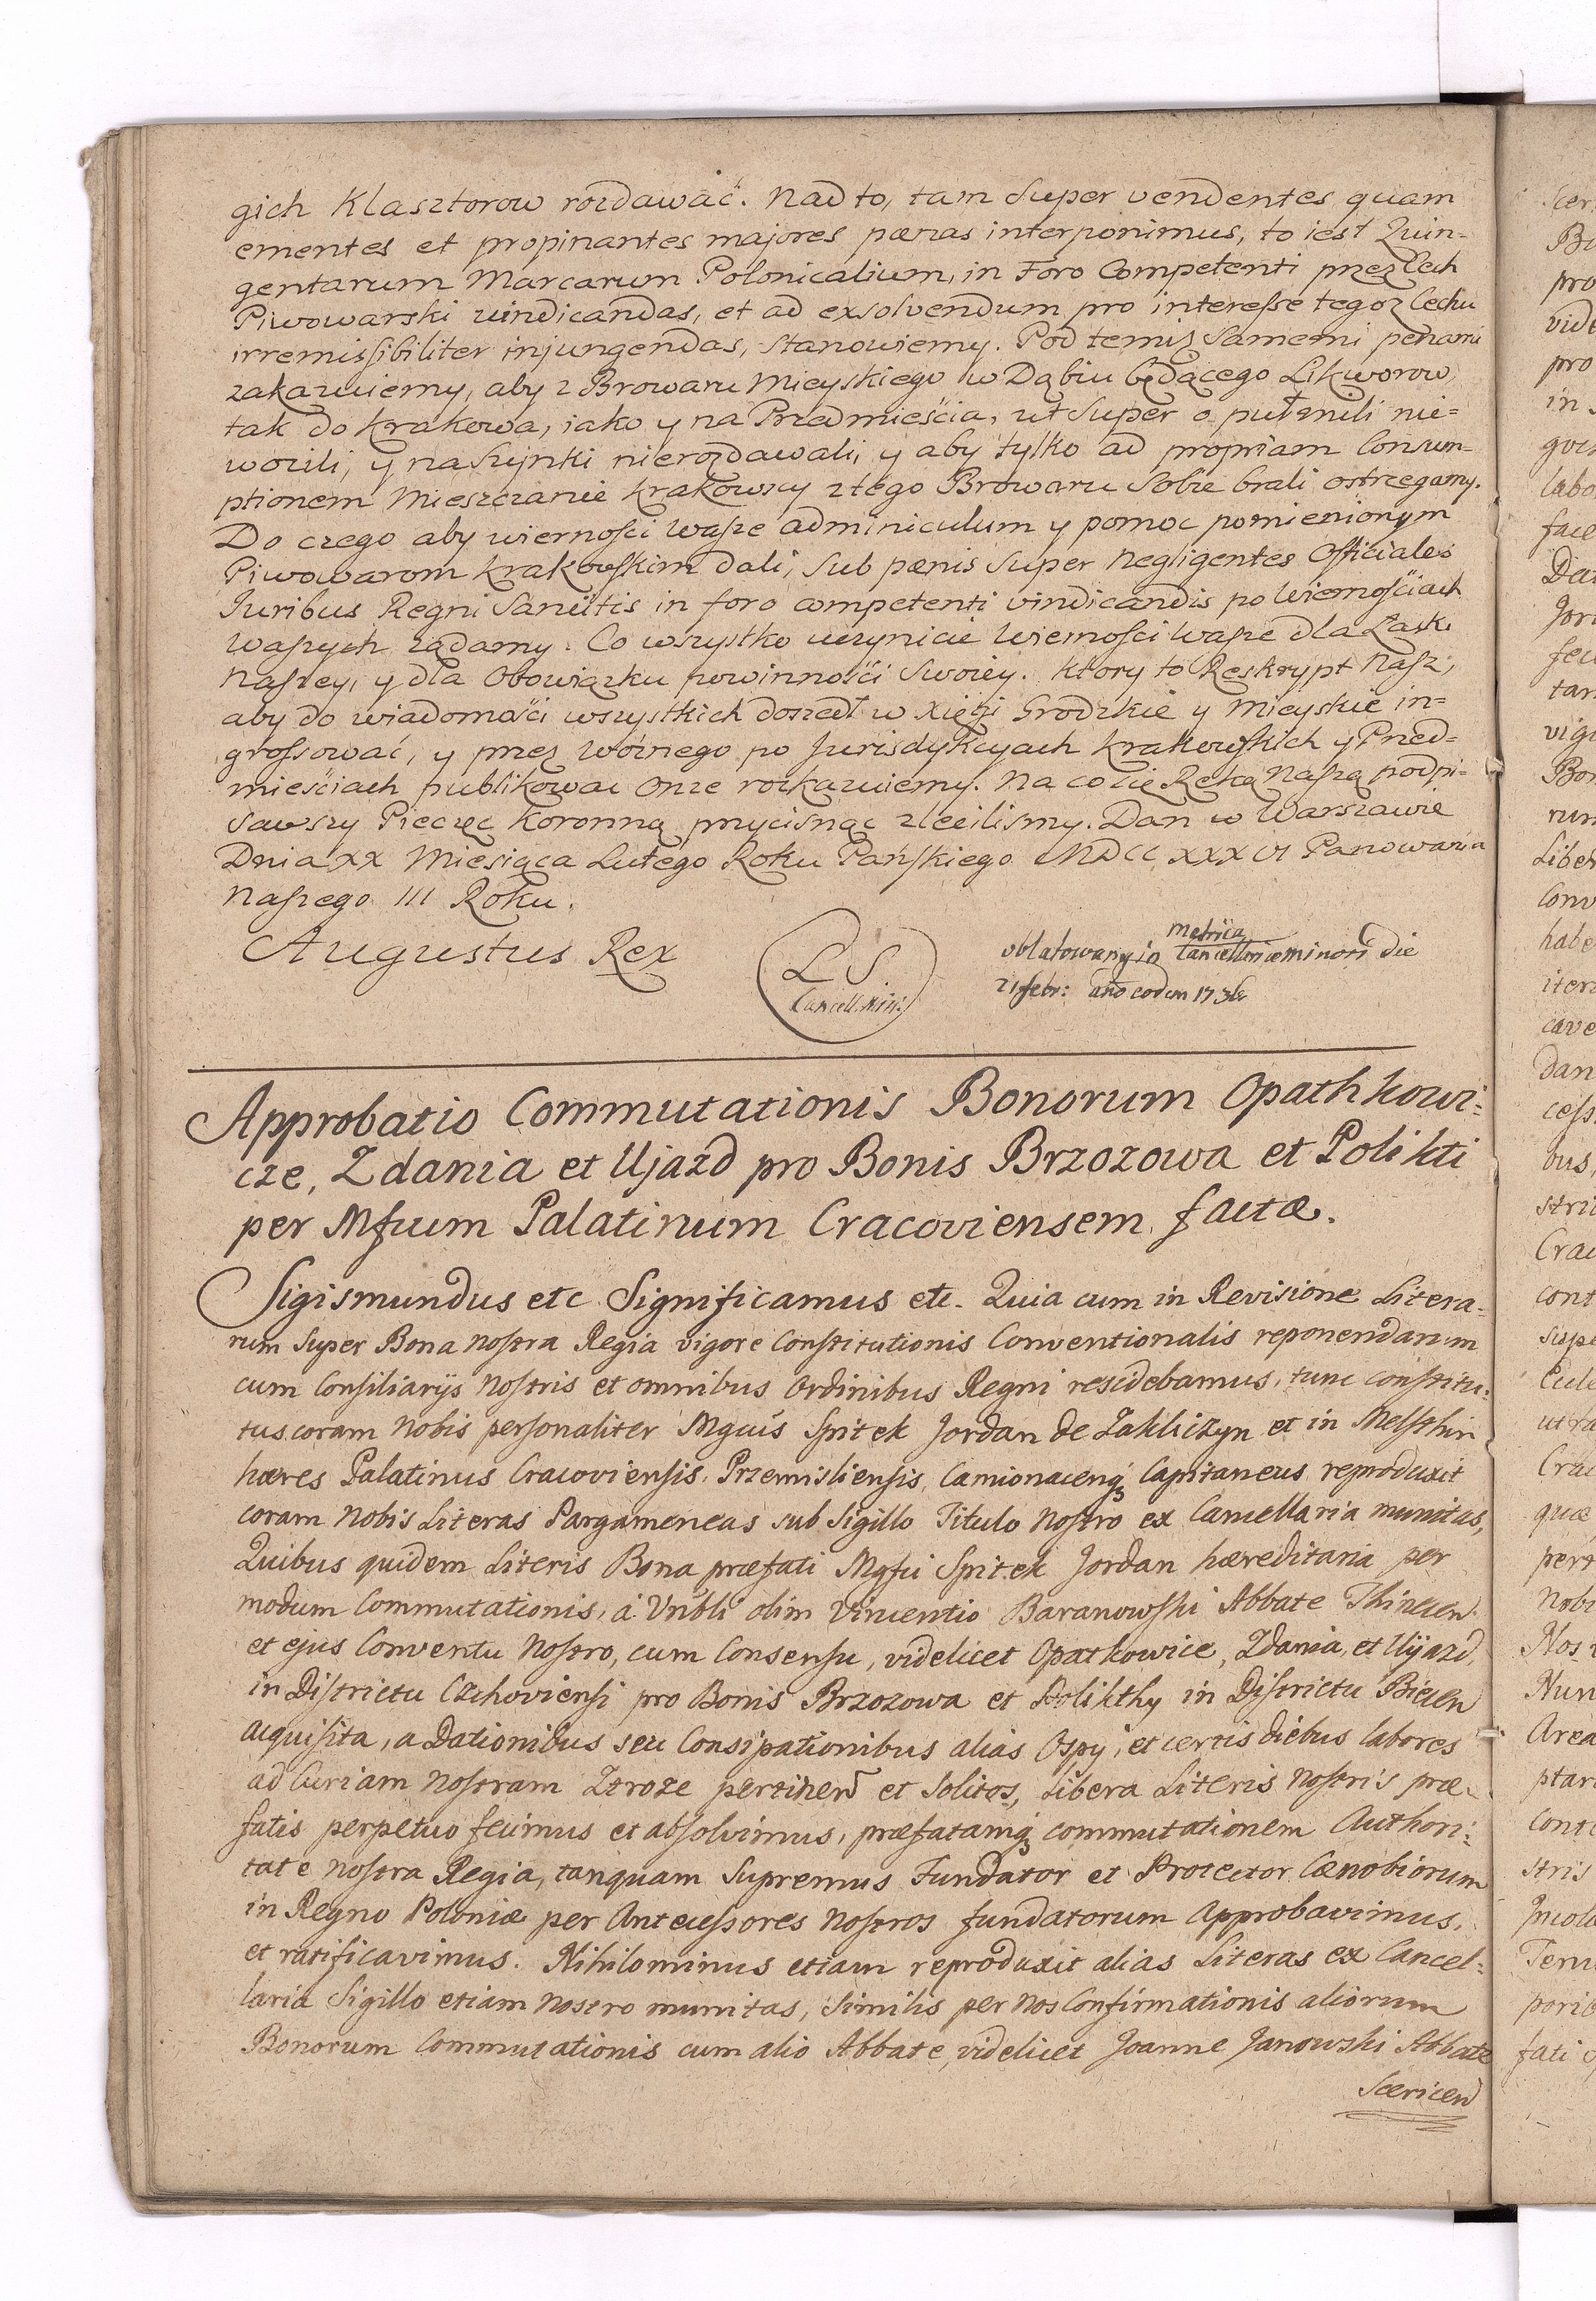 gich Klasztorow rozdawać. Nad to, tam Super vendentes quam
ementes et propinantes majores pænas interponimus, to iest Quin-
gentarum Marcarum Polonicalium, in Foro Competenti przez Cech
Piwowarski vindicandas, et ad exsolvendum pro interesse tegoz Cechu
irremissibiliter injungendas, Stanowiemy. Pod temiż Samemi penami
zakazuiemy, aby z Browaru Mieyskiego w Dąbiu będącego Likworow
tak do Krakowa, iako y na Przedmieścia, ut Super o pułmili nie=
wozili, y na Szynki nierozdawali, y aby tylko ad propriam Consum-
ptionem Mieszczanie Krakowscy z tego Browaru Sobie brali ostrzegamy.
Do czego aby wierności Wasze adminiculum y pomoc pomienionym
Piwowarom Krakowskim dali, Sub pænis Super Negligentes Officiales
Juribus Regni Sancitis in foro competenti vindicandis po Wiernościach
Waszych żądamy. Co wszystko uczynicie Wierności Wasze dla Łaski
Naszey, y dla Obowiązku powinności Swoiey. Ktory to Reskrypt Nasz,
aby do wiadomości wszystkich doszedł w Xięgi Grodzkie y Mieyskie in=
grossować, y przez Woźnego po Jurisdykcyach Krakowskich y Przed=
mieściach publikować Onze rozkazuiemy. Na co się Ręką Naszą podpi=
sawszy Pieczęc Koronną przycisnąc zleciliśmy. Dan w Warszawie
Dnia XX Miesiąca Lutego Roku Pańskiego MDCCXXXVI Panowania
Naszego III Roku.
Augustus Rex
LS
Cancell. Min:
oblatowany in Metrica Cancellariæ minori die
21 febr: año eodem 1736
Approbatio Commutationis Bonorum Opathkowi:
cze, Zdania et Ujazd pro Bonis Brzozowa et Polikti
per Mfcum Palatinum Cracoviensem factæ.
Sigismundus etc Significamus etc. Quia cum in Revisione Litera-
rum Super Bona Nostra Regia vigore Constitutionis Conventionalis reponendarum
cum Consiliarijs Nostris et omnibus Ordinibus Regni residebamus, tunc constitu-
tus coram Nobis personaliter Mgcus Spitek Jordan de Zakliczyn et in Melsthin
hæres Palatinus Cracoviensis, Przemisliensis, Camionacenq Capitaneus reproduxit
coram Nobis Literas Pargameneas sub Sigillo Titulo Nostro ex Cancellaria munitas,
Quibus quidem Literis Bona præfati Mgfci Spitek Jordan hæreditaria per
modum Commutationis, á Vnbli olim Vincentio Baranowski Abbate Thinecen
et ejus Conventu Nostro, cum Consensu, videlicet Opatkowice, Zdania, et Ujazd,
in Districtu Czchoviensi pro Bonis Brzozowa et Polikthy in Districtu Biecen
acquisita, a Dationibus seu Consipationibus alias Ospy, et certis diebus labores
ad Curiam Nostram Ztroze pertinen et Solitos, Libera Literis Nostris præ-
fatis perpetuo fecimus et absolvimus, præfatamq commutationem Authori:
tate Nostra Regia, tanquam Supremus Fundator et Protector Cænobiorum
in Regno Poloniæ per Antecessores Nostros fundatorum Approbavimus,
et ratificavimus. Nihilominus etiam reproduxit alias Literas ex Cancel-
laria Sigillo etiam Nostro munitas, Similis per Nos Confirmationis aliorum
Bonorum Commutationis cum alio Abbate, videlicet Joanne Janowski Abbate
Scericen